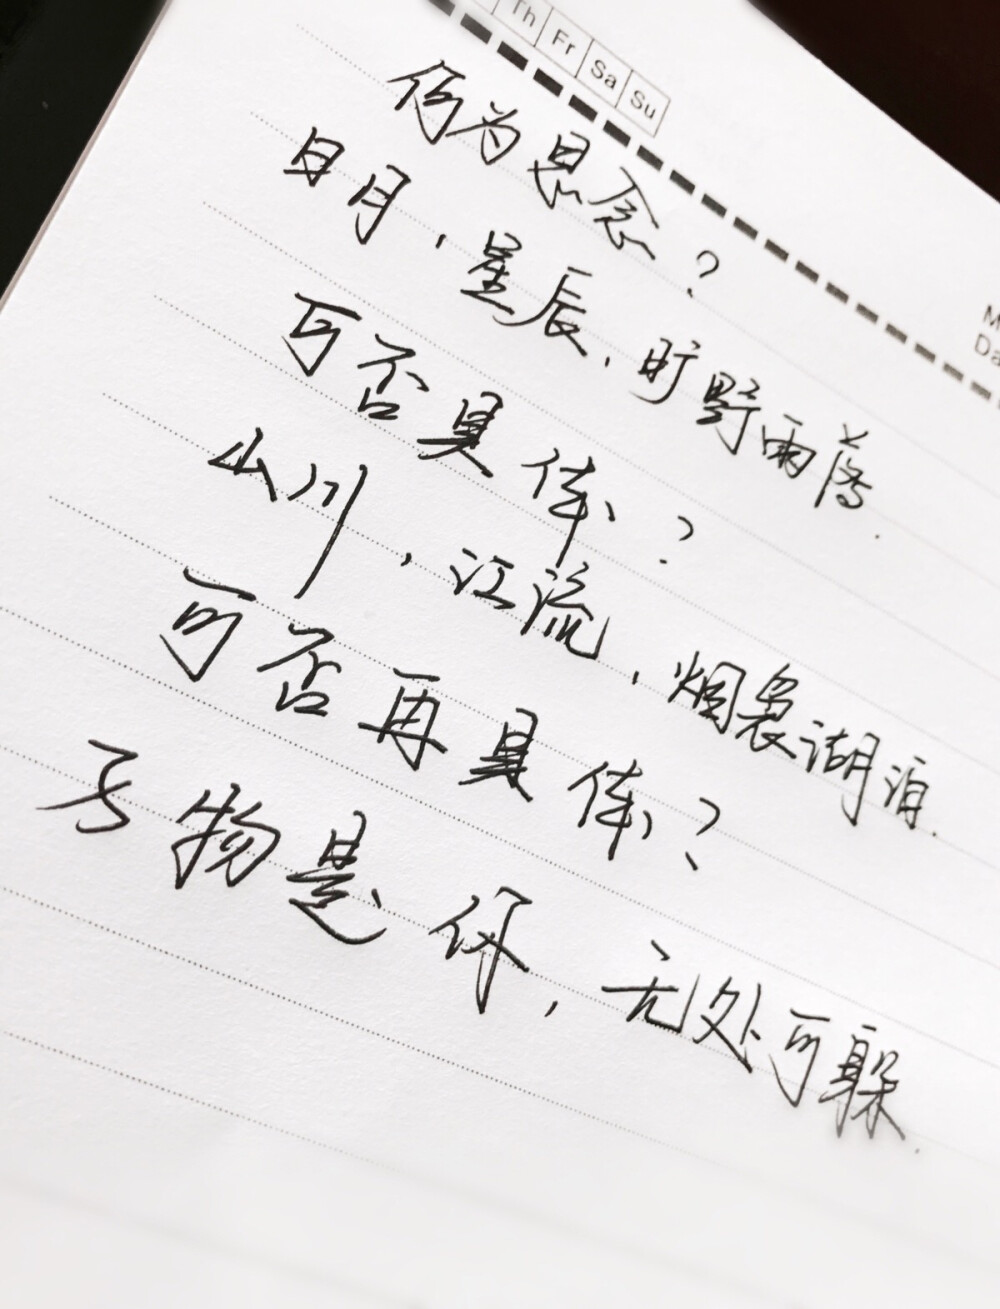 Th Fr Sa Su
何为思念?
日月,星辰,旷野雨落.
可否具体?
山川,江流,烟袅湖泊.
可否再具体?
万物是你,无处可躲.